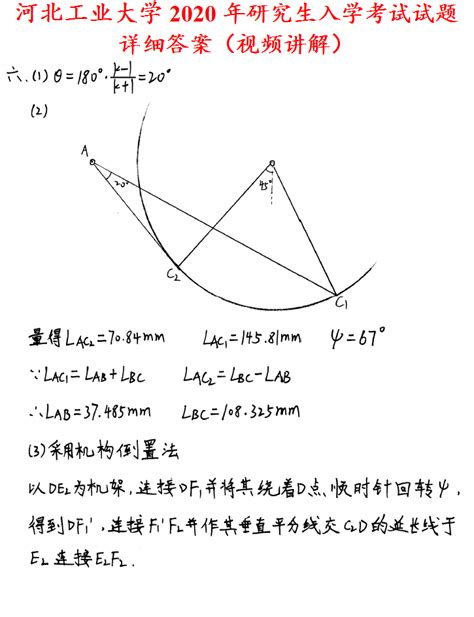 河北工业大学 2020 年研究生入学考试试题
详细答案（视频讲解）
六.(1) θ=180°·|k-1|/|k+1|=20°
(2)
A
20°
45°
C2
C1
量得 LAC2=70.84mm LAC1=145.81mm ψ=67°
∵LAC1=LAB+LBC LAC2=LBC-LAB
∴LAB=37.485mm LBC=108.325mm
(3)采用机构倒置法
以DE2为机架,连接DF1并将其绕着D点顺时针回转ψ,
得到DF1',连接F1'F2并作其垂直平分线交C2D的延长线于
E2连接E2F2.